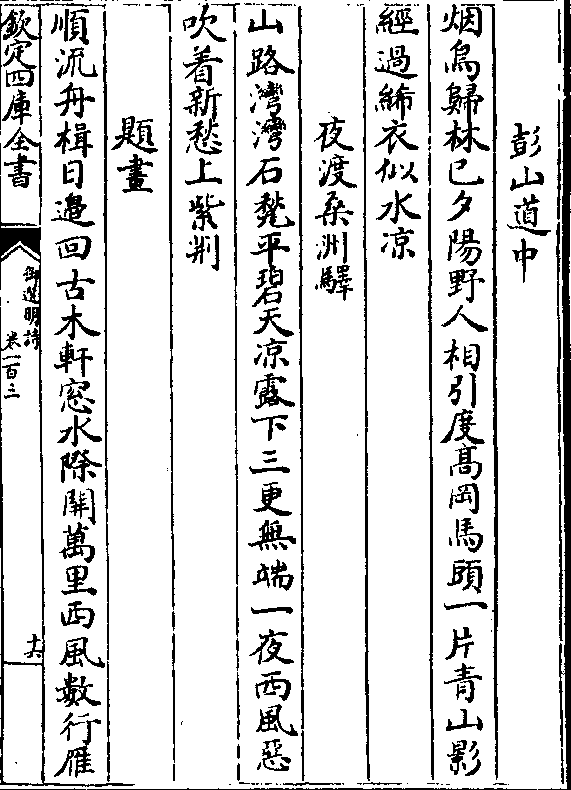 彭山道中
烟鳥歸林已夕陽野人相引度高岡馬頭一片青山影
經過絺衣似水凉
夜渡桑洲驛
山路灣灣石甃平碧天凉露下三更無端一夜西風惡
吹着新愁上紫荆
題畫
順流舟楫日邉回古木軒窓水際開萬里西風數行雁
欽定四庫全書
御選明詩
卷一百三
十六